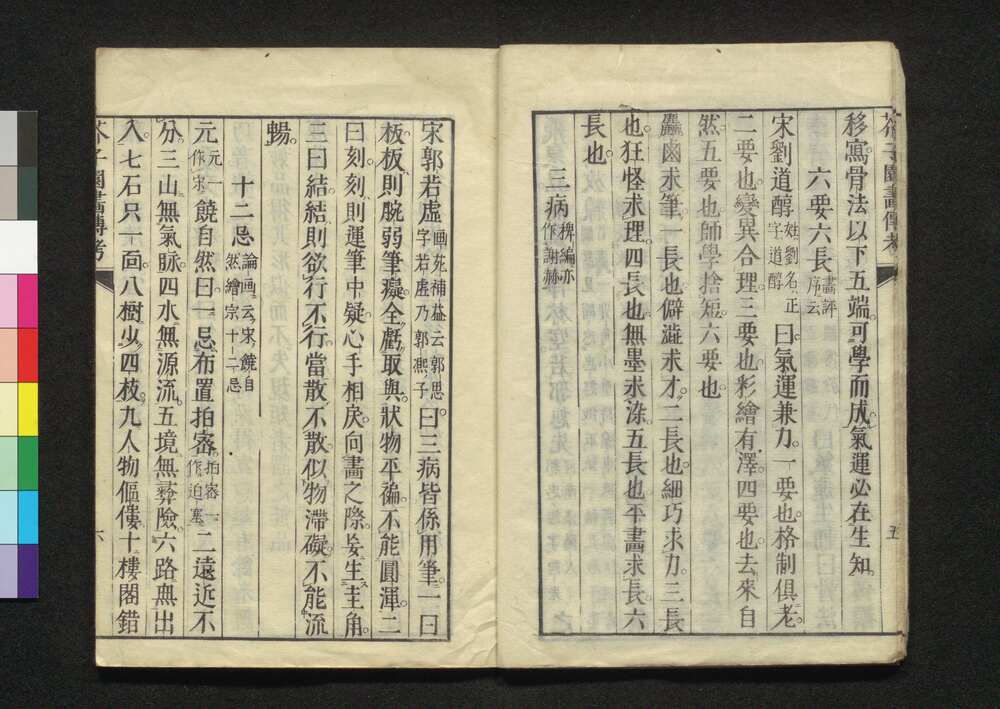 芥子園畫傳考
移寫骨法以下五端可學而成氣運必在生知
六要六長 畫評序云
宋劉道醇 姓劉名正字道醇 曰氣運兼力一要也格制俱老
二要也變異合理三要也彩繪有澤四要也去來自
然五要也師學捨短六要也
麤鹵求筆一長也僻澁求才二長也細巧求力三長
也狂怪求理四長也無墨求染五長也平畫求長六
長也
三病 稗編亦作謝赫
五
宋郭若虛 画苑補益云郭思字若虛乃郭熙子 曰三病皆係用筆一曰
板板則腕弱筆癡全虧取與狀物平褊不能圓渾二
曰刻刻則運筆中疑心手相戾向畫之際妄生圭角
三曰結結則欲行不行當散不散似物滯礙不能流
暢
十二忌 論画云宋饒自然繪宗十二忌
元 元一作宋 饒自然曰一忌布置拍密 拍密一作迫塞 二遠近不
分三山無氣脉四水無源流五境無彝險六路無出
入七石只一面八樹少四枝九人物傴僂十樓閣錯
芥子園畫傳考
六